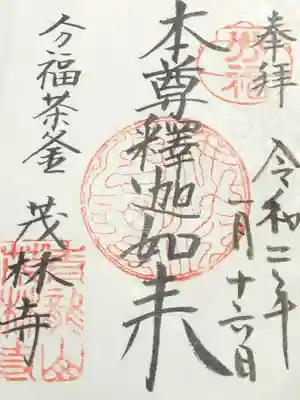 奉拝
令和二年
一月十六日
本尊釋迦如来
分福茶釜
茂林寺